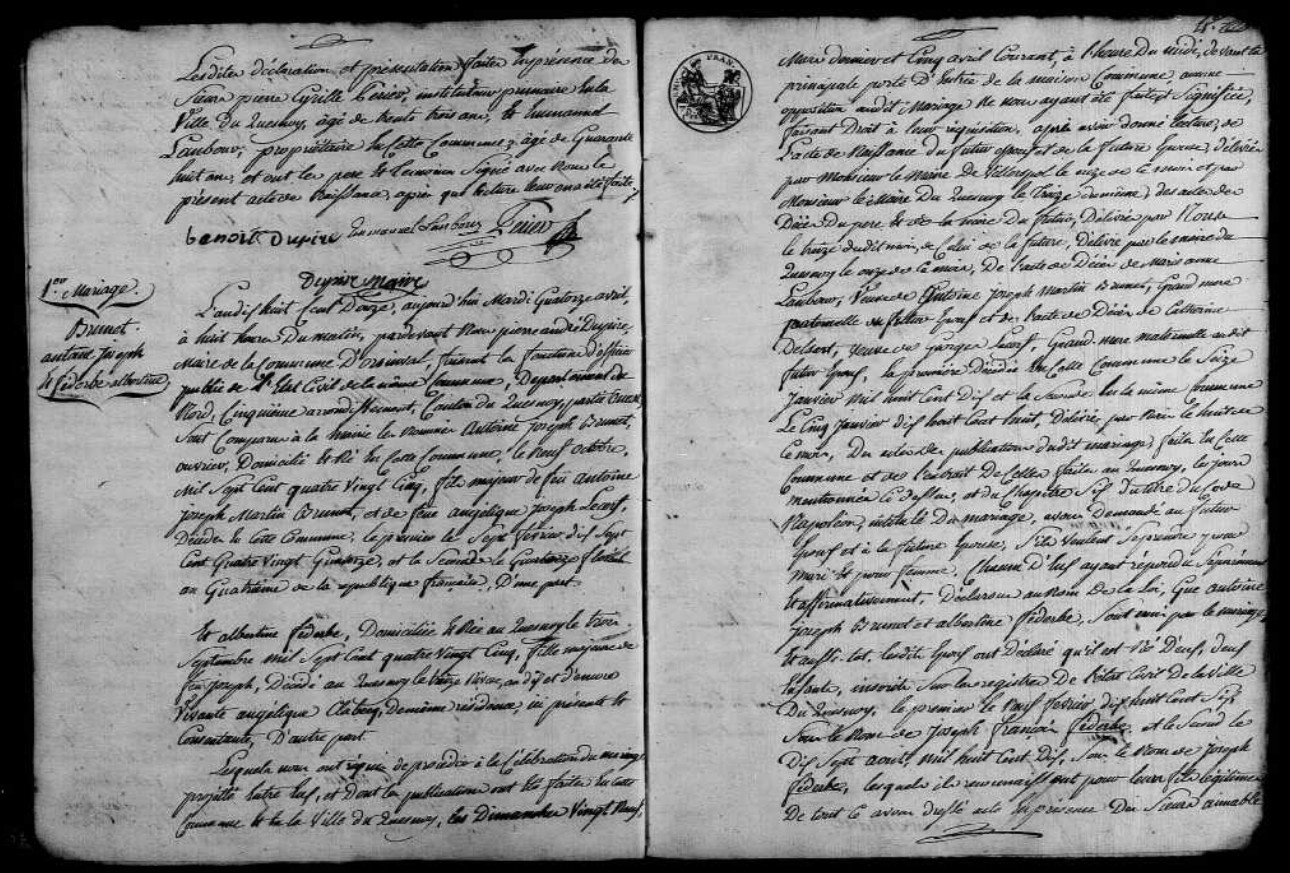 Lesdites déclaration et présentation faites En présence des
Sieurs pierre Cyrille Périer, instituteur primaire En la
Ville du Quesnoy, âgé de trente trois ans, Et Emmanuel
Laubour, propriétaire En Cette Commune, âgé de Quarante
huit ans, et ont les pere Et temoins Signé avec Nous le
présent acte de Naissance, après que lecture leur en a été faite
benoit Dupire Emmanuel Laubour Périer
Dupire Maire
1.er Mariage.
Brunot.
antoine joseph
Et féderbe albertine
L'an dix huit Cent Douze, aujourd'hui Mardi Quatorze avril,
à huit heures Du matin, pardevant Nous pierre andré Dupire,
Maire de la Commune D'Orsinval, faisant les fonctions d'officier
public de l'Etat Civil de la même Commune, Département du
Nord, Cinquième arrondissement, Canton du Quesnoy, partie Ouest,
Sont Comparus à la mairie les Nommés Antoine Joseph Brunot,
ouvrier, Domicilié Et Né En Cette Commune, le Neuf octobre,
Mil Sept Cent quatre Vingt Cinq, fils majeur de feu Antoine
Joseph Martin Brunot, et de feue angélique Joseph Lecerf,
Décédés En Cette Commune, le premier le Sept février dix Sept
Cent Quatre Vingt Quatorze, et la Seconde le Quatorze floréal
an Quatrieme de la republique française, D'une part.
Et albertine féderbe, Domiciliée Et Née au Quesnoy le trois
Septembre mil Sept Cent quatre Vingt Cinq, fille majeure de
feu Joseph, Décédé au Quesnoy le treize Nivose, an dix et d'encore
Vivante angélique, de même résidence; ici présente Et
Consentante, D'autre part.
Lesquels nous ont requis de procéder à la Célébration du mariage
projetté Entre Eux, et Dont les publications ont Eté faites En Cette
Commune Et En la Ville du Quesnoy, les Dimanches Vingt Neuf,
Mars dernier et Cinq avril Courant, à l'heure Du midi, devant la
principale porte D'Entrée de la maison Commune, aucune
opposition audit Mariage Ne nous ayant été faite, Et Signifiée,
faisant Droit à leur réquisition, après avoir donné lecture, de
l'acte de Naissance du futur Epoux et de la future Epouse, délivrés
par Monsieur le Maire de Villerspol le onze de ce mois et par
Monsieur le Maire Du Quesnoy le treize du même; des actes de
Décès Du pere Et de la mere Du futur, Délivrés par Nous
le treize dudit mois, de Celui de la future, délivré par le maire du
Quesnoy le onze de Ce mois, De l'acte de Décès de Marie anne
Laubour, Veuve de Antoine Joseph Martin Brunot, Grand mere
paternelle du futur Epoux et de l'acte de Décès de Catherine
Delsart, Veuve de Georges Lecerf, Grand mere maternelle audit
futur Epoux, la première Décédée En Cette Commune le Seize
Janvier Mil huit Cent Dix et la Seconde En la même Commune
Le Cinq Janvier dix huit Cent huit, Délivrés par Nous le huit de
Ce mois, Des actes de publications dudit mariage, faites En Cette
Commune et de l'extrait De Celles faites au Quesnoy, les jours
mentionnés Ci dessus, et du Chapitre Six du titre du Code
Napoléon, intitulé Du mariage, avons Demandé au futur
Epoux et à la future Epouse, S'ils veulent Se prendre pour
mari Et pour femme, Chacun D'Eux ayant répondu Séparément
Et affirmativement, Déclarons au Nom De la Loi, Que antoine
joseph Brunot et albertine féderbe, Sont unis par le mariage,
Et aussi-tôt, lesdits Epoux ont Déclaré qu'il est Né D'eux, deux
Enfants, inscrits Sur les registres De l'état Civil De la Ville
Du Quesnoy, le premier le Neuf février dix huit Cent Six,
Sous le Nom de Joseph françois féderbe, et le Second le
Dix Sept aout, Mil huit Cent Dix, Sous le Nom de joseph
féderbe, lesquels ils reconnaissent pour leurs fils légitimes
De tout Ce avons dressé acte En présence Des Sieurs aimable